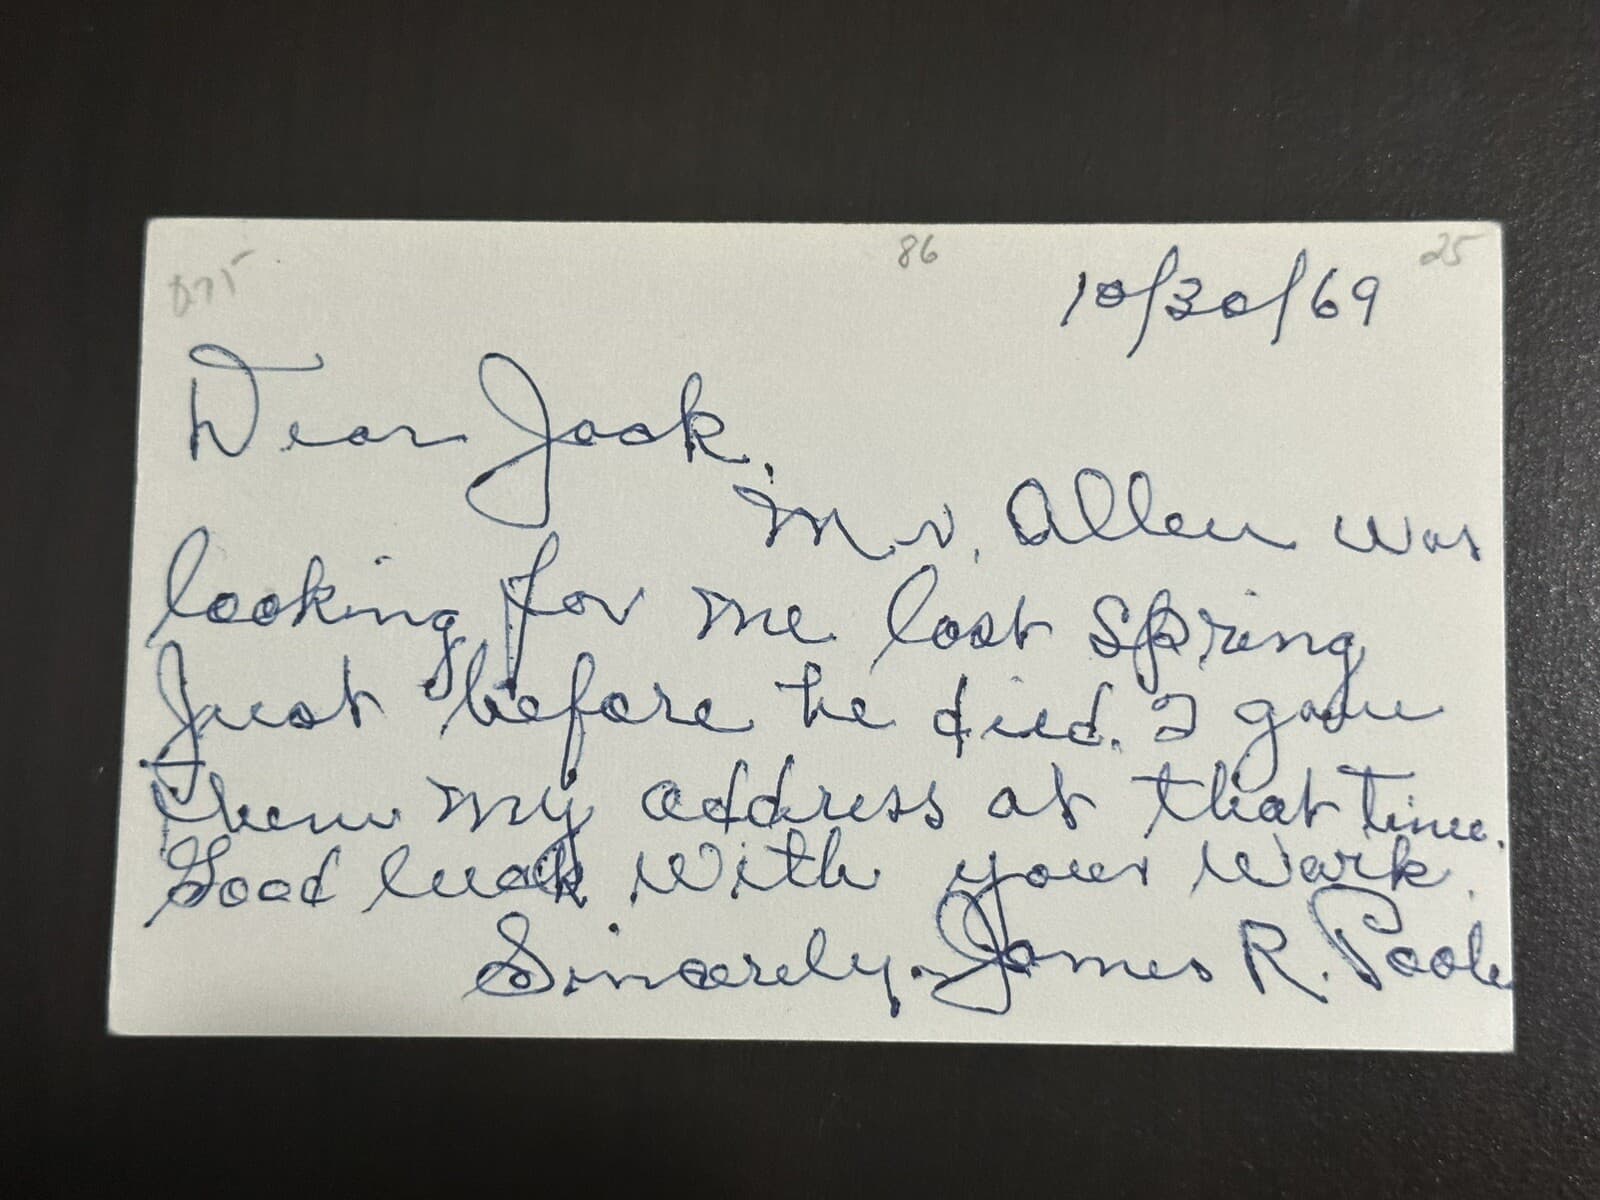 86 25
10/30/69
Dear Jack.
Mr. Allen was
looking for me last spring
Just before he died. I gave
them my address at that time.
Good luck with your work.
Sincerely. James R. Poole